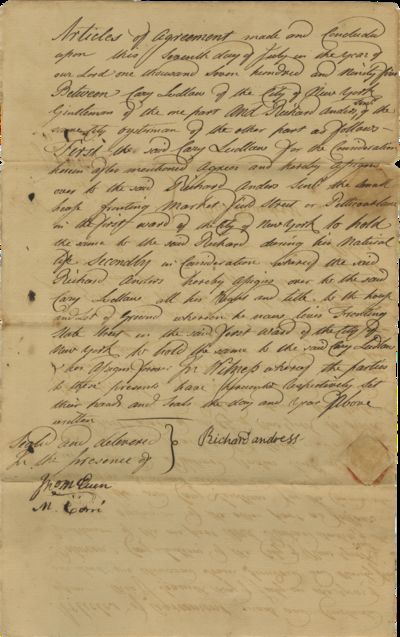 Articles of Agreement made and Concluded
upon this Seventh day of July in the Year of
our Lord one thousand Seven hundred and Ninety five
Between Cary Ludlow of the City of New York
Gentleman of the one part And Richard Anders Senr. of the
same City oystiman of the other part as follows
First the said Cary Ludlow for the Consideration
herein after mentioned Agrees and hereby Assigns
over to the said Richard Anders Senr. the small
house fronting Market field Street or Petticoat lane
in the first ward of the City of New York to hold
the same to the said Richard during his Natural
life Secondly in Consideration whereof the said
Richard Anders hereby Assigns over to the said
Cary Ludlow all his Right and title to the house
and Lot of Ground whereon he now lives Fronting
State Street in the said first Ward of the City of
New York to hold the same to the said Cary Ludlow
& his Assigns forever In Witness whereof the parties
to these presents have hereunto respectively set
their hands and Seals the day and Year Above
written
Seald and delivered
In the presence of
Richard andress
Jno McEuen
M.